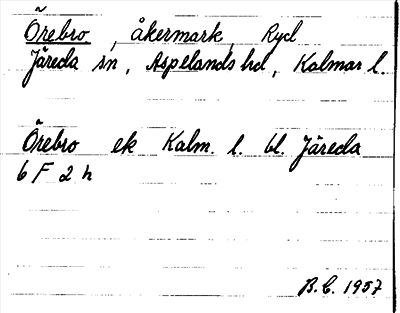 Örebro, åkermark, Ryd
Järeda sn, Aspelands hd, Kalmar l.
Örebro ek Kalm. l. bl. Järeda
6 F 2 h
B.C. 1957